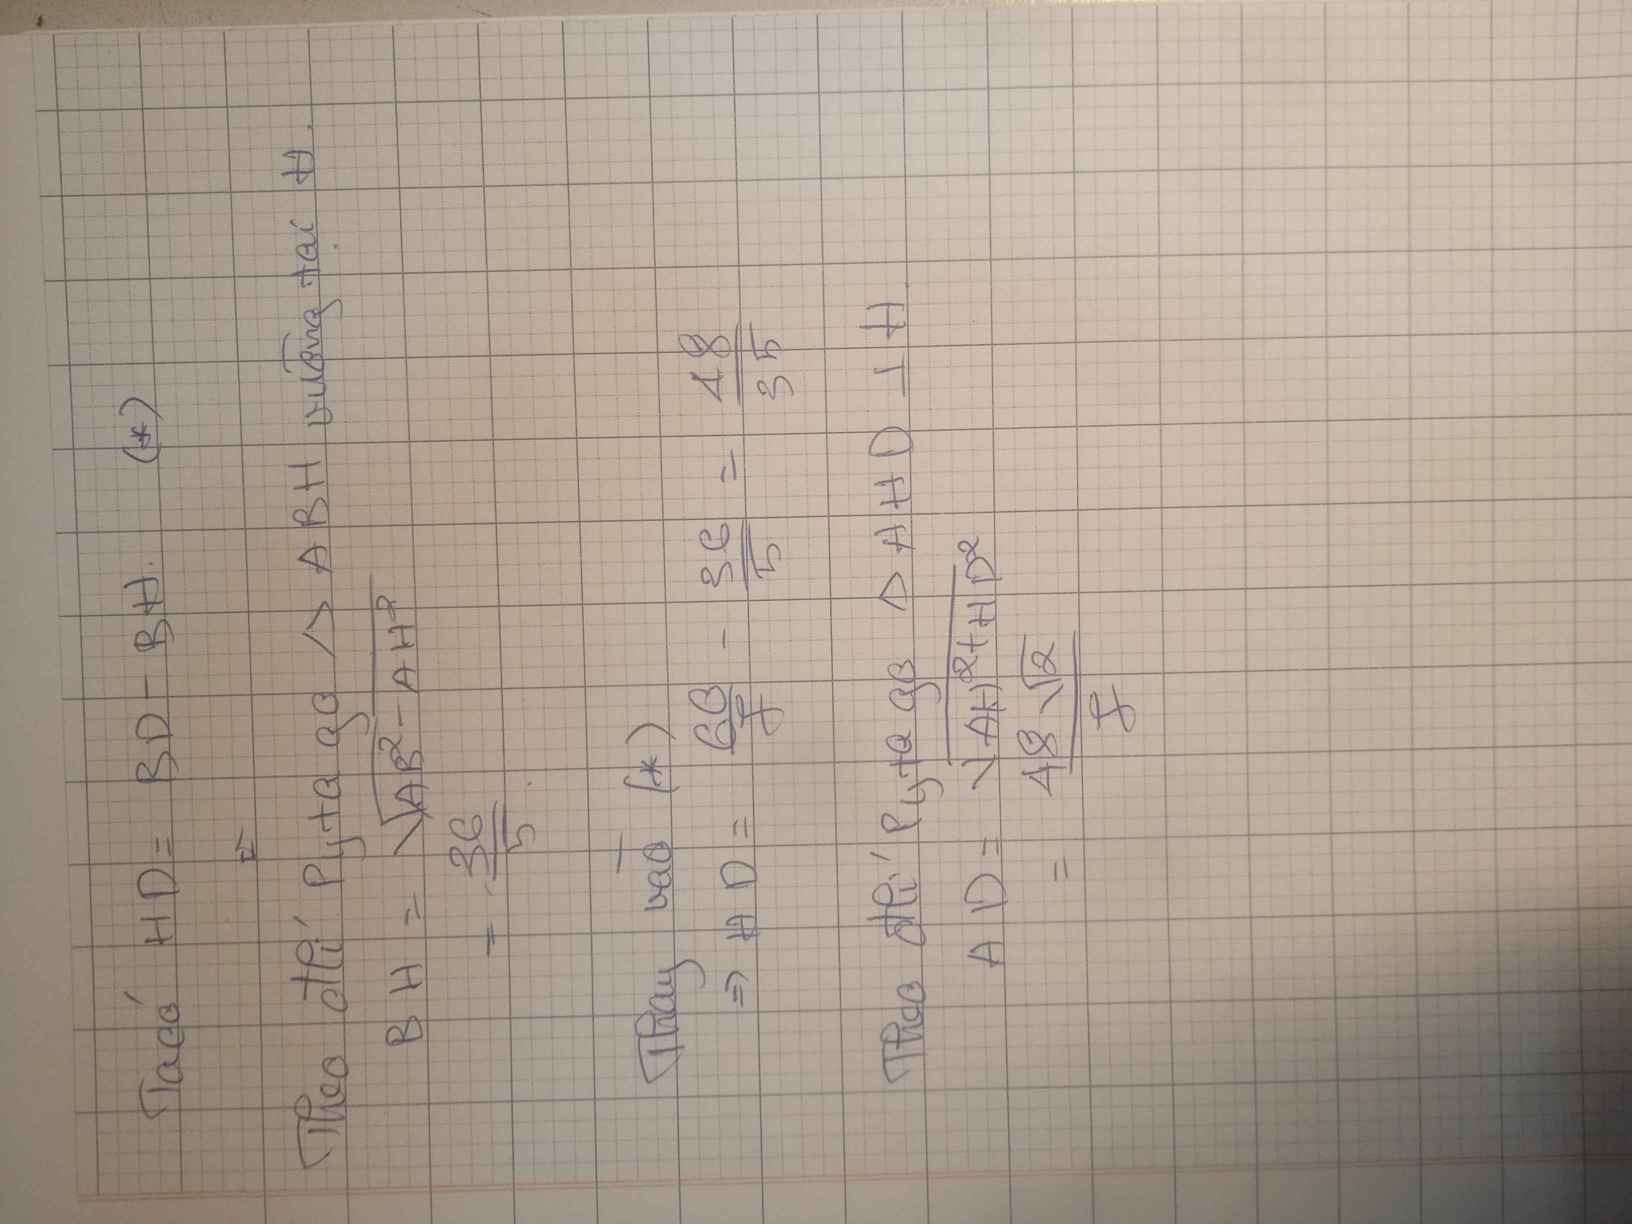 Ta có HD = BD - BH. (*)
Theo đlí Pytago △ ABH vuông tại H.
BH = √AB² - AH²
= 36/5
Thay vào (*)
⇒ HD = 60/7 - 36/5 = 48/35
Theo đlí Pytago △ AHD ⊥ H
AD = √AH² + HD²
= 48√2/7